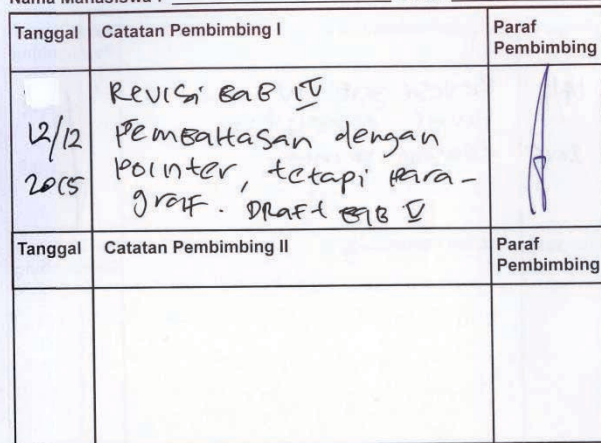 Nama Mahasiswa :
Tanggal Catatan Pembimbing I Paraf Pembimbing
Revisi BAB IV
12/12 Pembahasan dengan
2015 pointer, tetapi para-
graf. Draft BAB V
Tanggal Catatan Pembimbing II Paraf Pembimbing